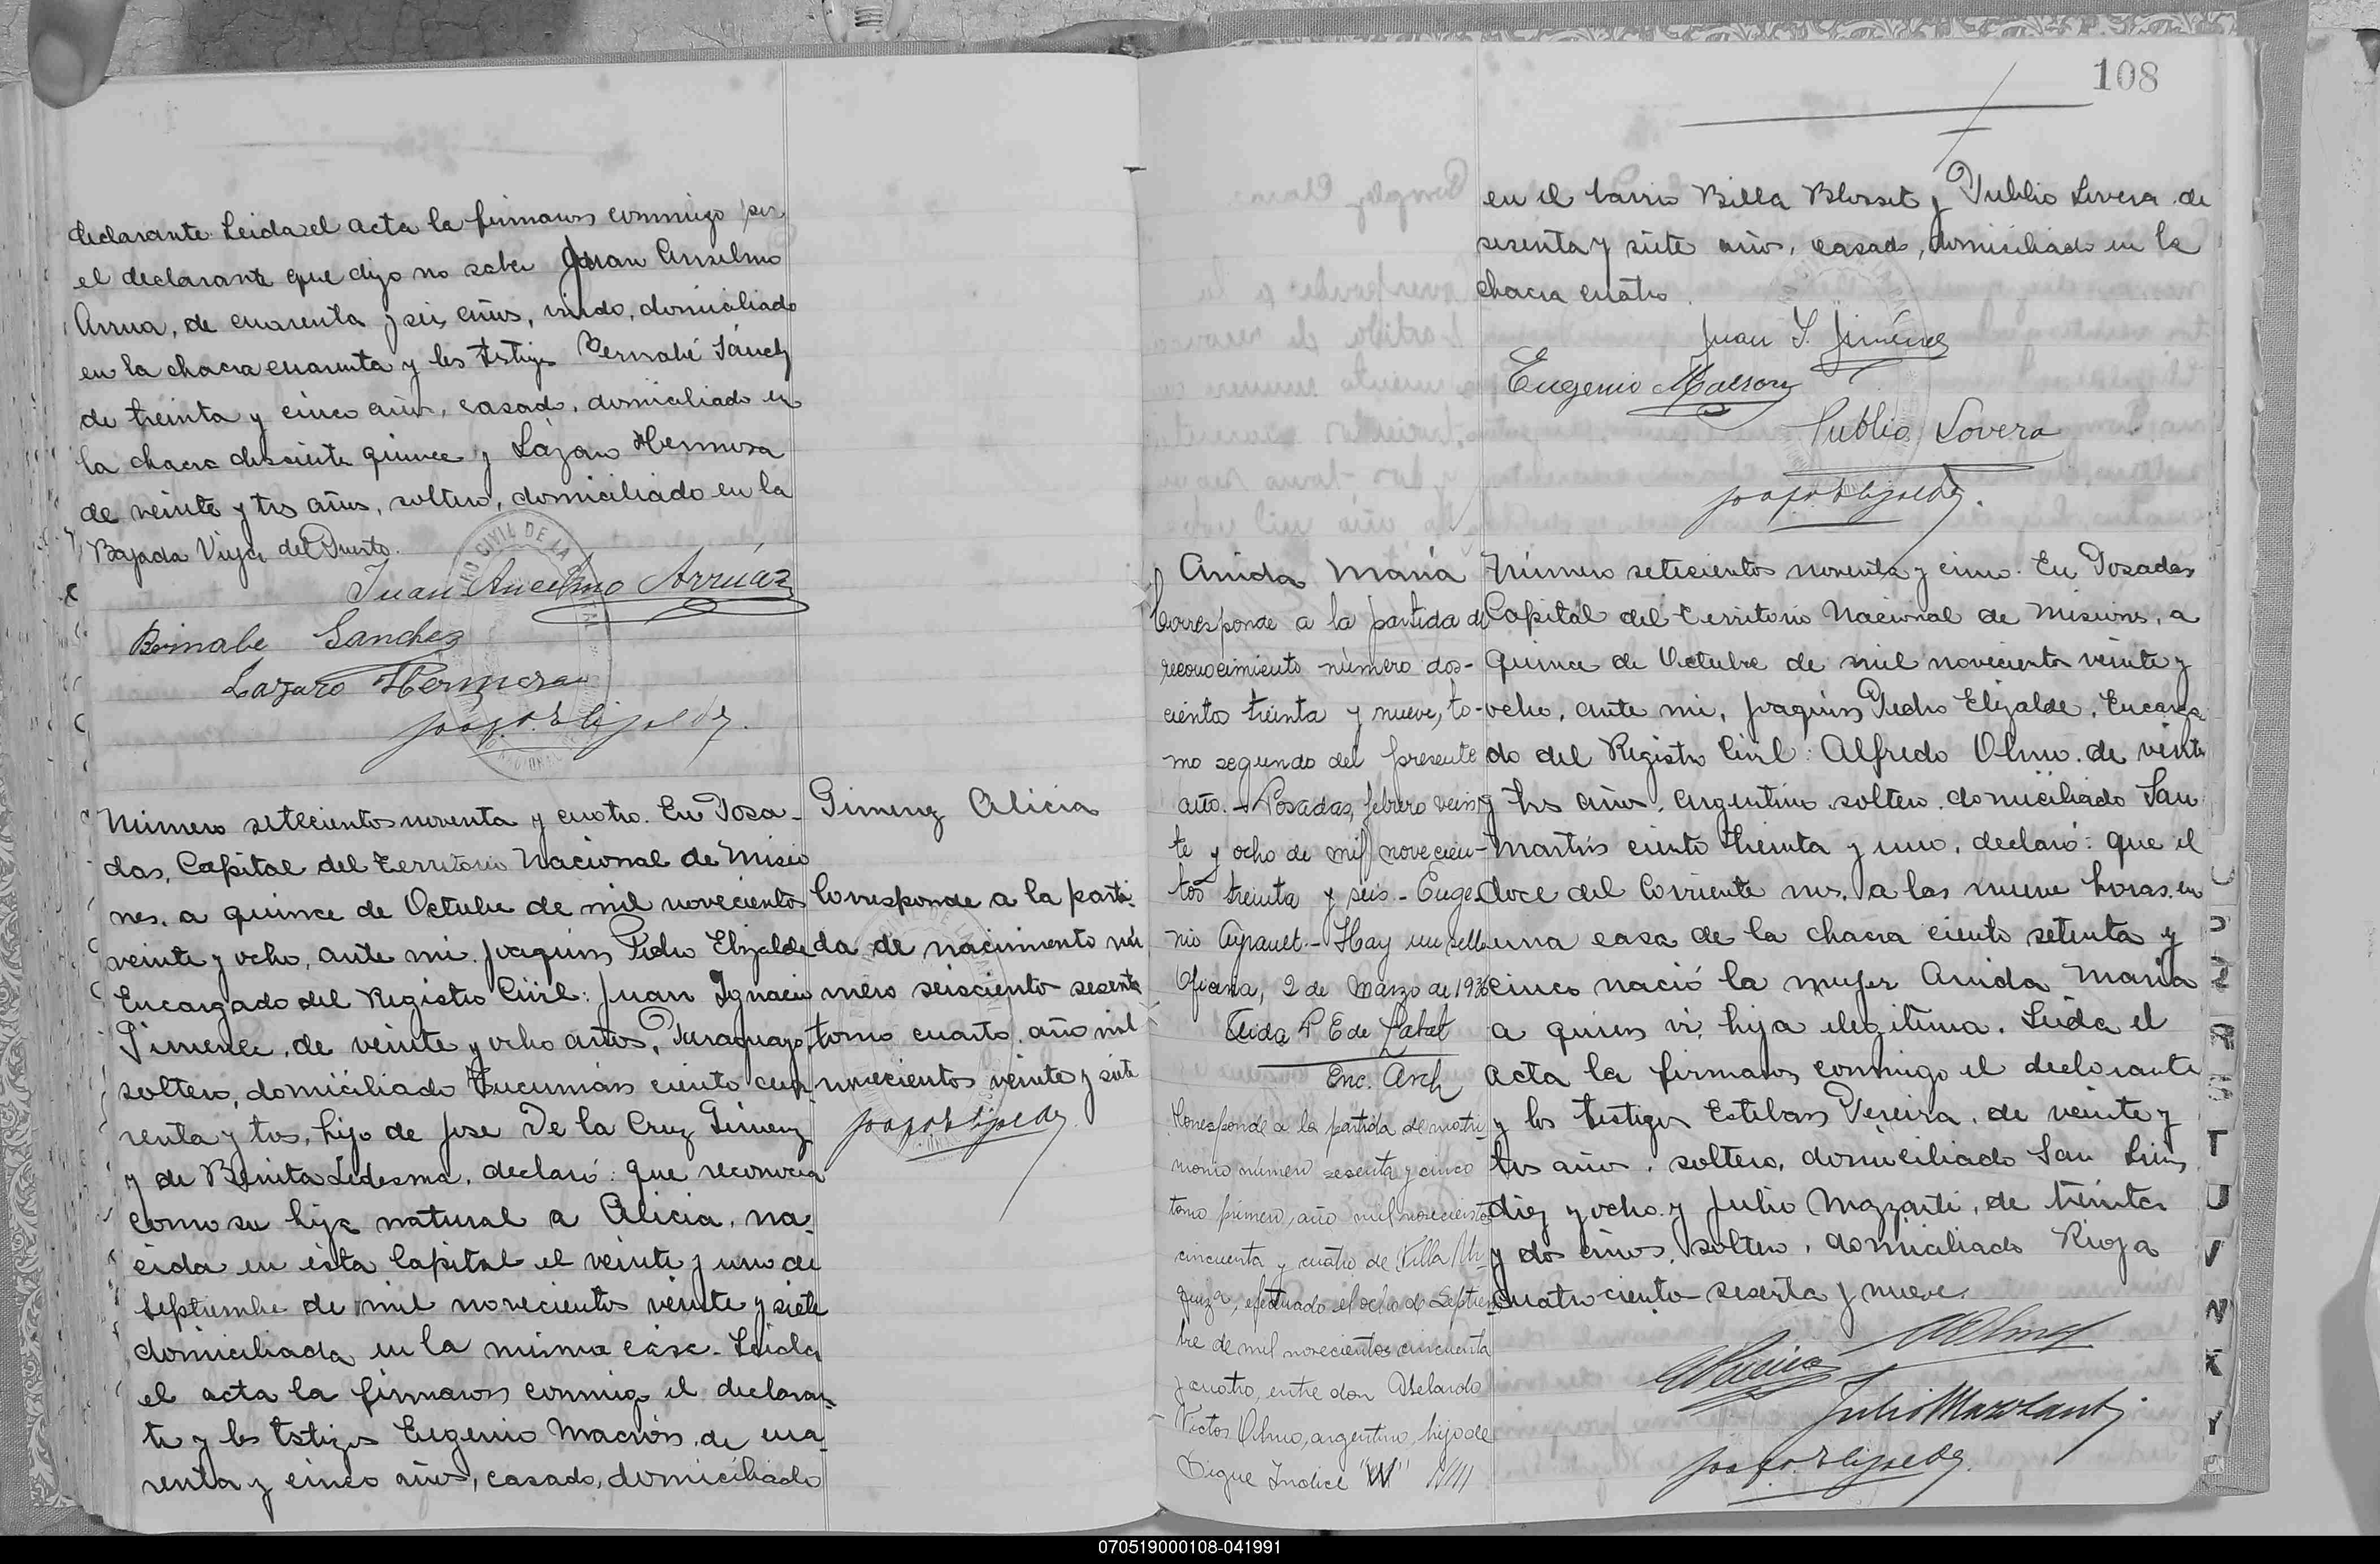 declarante. Leida el acta la firmaron conmigo por
el declarante que dijo no saber Juan Anselmo
Arrua, de cuarenta y seis años, viudo, domiciliado
en la chacra cuarenta y los testigos Bernabé Sánchez
de treinta y cinco años, casado, domiciliado en
la chacra doscientos quince y Lázaro Hermosa
de veinte y tres años, soltero, domiciliado en la
Bajada Vieja del Puerto.
Juan Ancelmo Arrúaz
Bernabe Sanchez
Lazaro Hermosa
Número setecientos noventa y cuatro. En Posa-
das, Capital del Territorio Nacional de Misio
nes, a quince de Octubre de mil novecientos
veinte y ocho, ante mi Joaquin Pedro Elizalde
Encargado del Registro Civil: Juan Ignacio
Gimenez, de veinte y ocho años, Paraguayo,
soltero, domiciliado Tucumán ciento cua-
renta y tres, hijo de Jose De la Cruz Gimenez
y de Benita Ledesma, declaró: que reconocia
como su hija natural a Alicia, na-
cida en ésta Capital el veinte y uno de
Septiembre de mil novecientos veinte y siete
domiciliada en la misma casa. Leida
el acta la firmaron conmigo el declaran-
te y los testigos Eugenio Macron, de cua-
renta y cinco años, casado, domiciliado
Gimenez Alicia
Corresponde a la parti-
da de nacimiento nú-
mero seisciento sesenta
tomo cuarto, año mil
novecientos veinte y siete
108
en el barrio Billa Blosset y Publio Lovera de
sesenta y siete años, casado, domiciliado en la
chacra cuatro.
Juan I. Jiménez
Eugenio
Publio Lovera
Anida María
Corresponde a la partida de
reconocimiento número dos-
cientos treinta y nueve, to-
mo segundo del presente
año. - Posadas, febrero vein-
te y ocho de mil novecien-
tos treinta y seis. - Euge-
nio Aypauet. - Hay un sello
Oficina, 2 de Marzo de 1936
P E de
Enc. Arch
Corresponde a la partida de matri-
monio número sesenta y cinco
tomo primero, año mil novecientos
cincuenta y cuatro de Villa Ur-
quiza, efectuado el ocho de Septiem-
bre de mil novecientos cincuenta
y cuatro, entre don Abelardo
Victor Olmo, argentino, hijo de
Sigue Indice "W"
Número setecientos noventa y cinco. En Posadas
Capital del Territorio Nacional de Misiones, a
quince de Octubre de mil novecientos veinte y
ocho, ante mi, Joaquin Pedro Elizalde, Encarga
do del Registro Civil: Alfredo Olmo, de veinte
y tres años, argentino, soltero, domiciliado San
Martin ciento treinta y uno, declaró: que el
doce del corriente mes, a las nueve horas, en
una casa de la chacra ciento setenta y
cinco nació la mujer Anida Maria
a quien vi, hija ilegitima. Leida el
acta la firmaron conmigo el declarante
y los testigos Esteban Pereira, de veinte y
tres años, soltero, domiciliado San Luis
diez y ocho y Julio Mazzanti, de treinta
y dos años, soltero, domiciliado Rioja
cuatro ciento sesenta y nueve.
R
T
U
V
X
Y
070519000108-041991